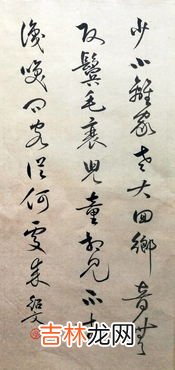 少小離家老大回鄉音無
改鬢毛衰兒童相見不相
識笑问客從何處来
吉林龙网